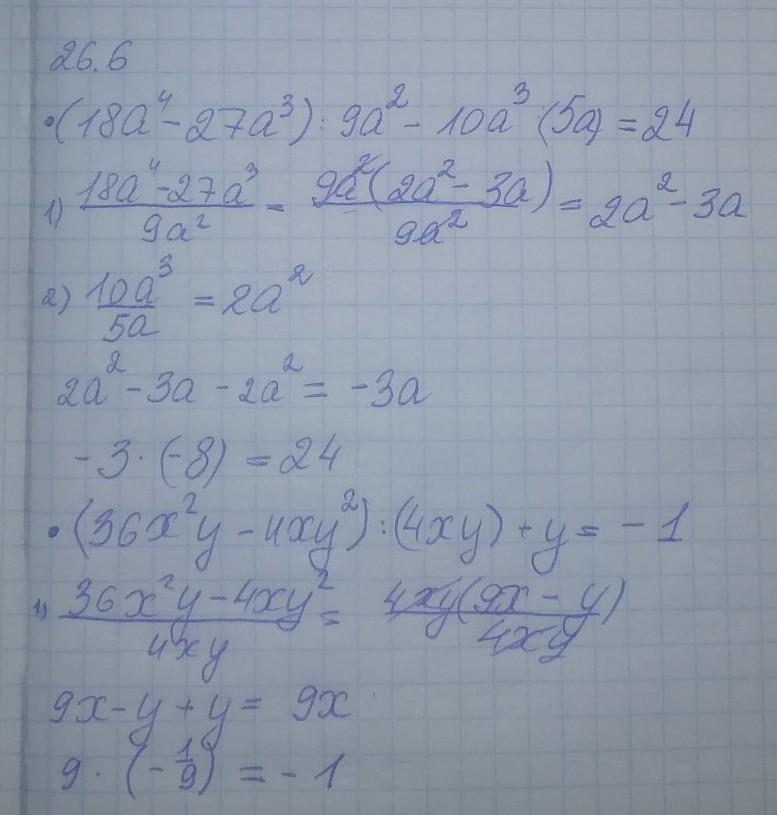 26.6
•(18a⁴ - 27a³) : 9a² - 10a³ : (5a) = 24
1) (18a⁴ - 27a³)/(9a²) = (9a²(2a² - 3a))/(9a²) = 2a² - 3a
2) 10a³/5a = 2a²
2a² - 3a - 2a² = -3a
-3 · (-8) = 24
•(36x²y - 4xy²) : (4xy) + y = -1
1) (36x²y - 4xy²)/(4xy) = (4xy(9x - y))/(4xy)
9x - y + y = 9x
9 · (-1/9) = -1